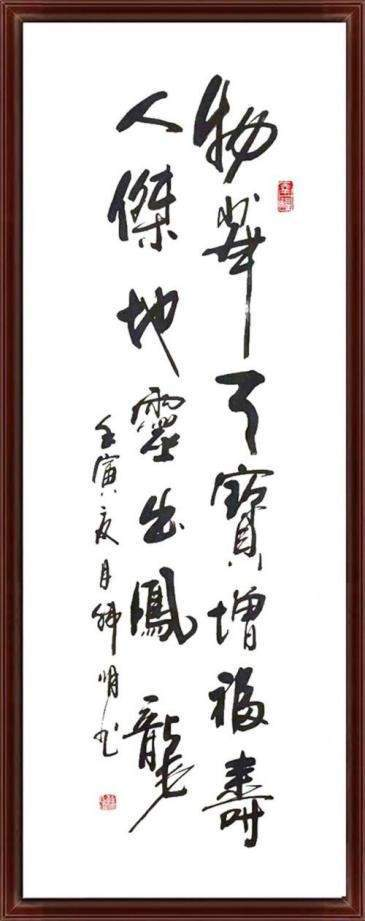 物華天寶增福壽
人傑地靈出鳳龍
壬寅夏月明书